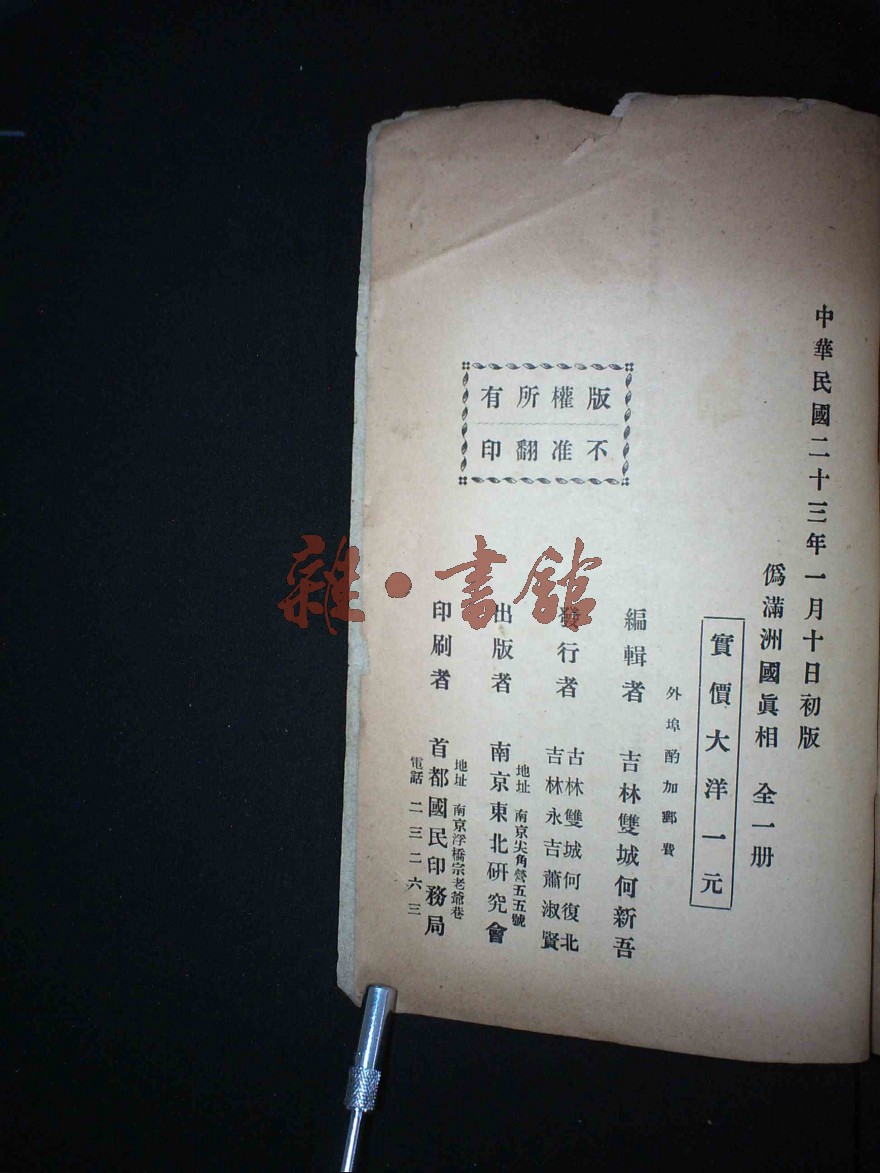 中華民國二十三年一月十日初版
僞滿洲國眞相 全一册
實價大洋一元
外埠酌加郵費
編輯者 吉林雙城何新吾
發行者 古林雙城何復北
吉林永吉蕭淑賢
出版者 南京東北研究會
地址 南京尖角營五五號
印刷者 首都國民印務局
地址 南京浮橋宗老爺巷
電話 二三二六三
版權所有
不准翻印
雜·書館